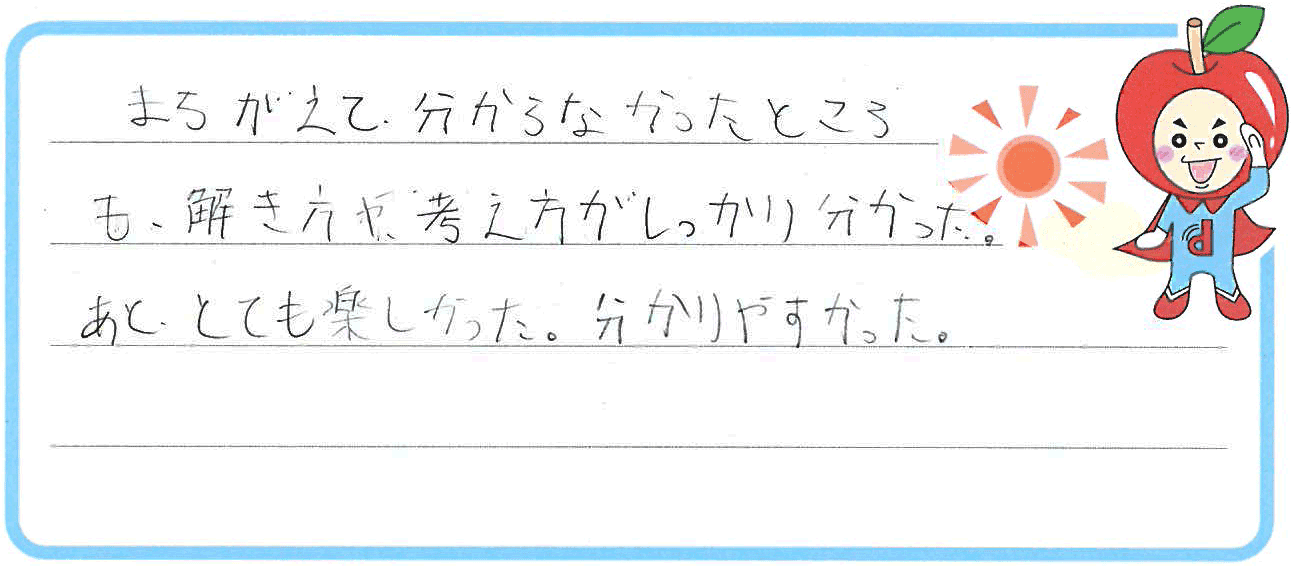 まちがえて、分からなかったところ
も、解き方や、考え方がしっかり分かった。
あと、とても楽しかった。分かりやすかった。